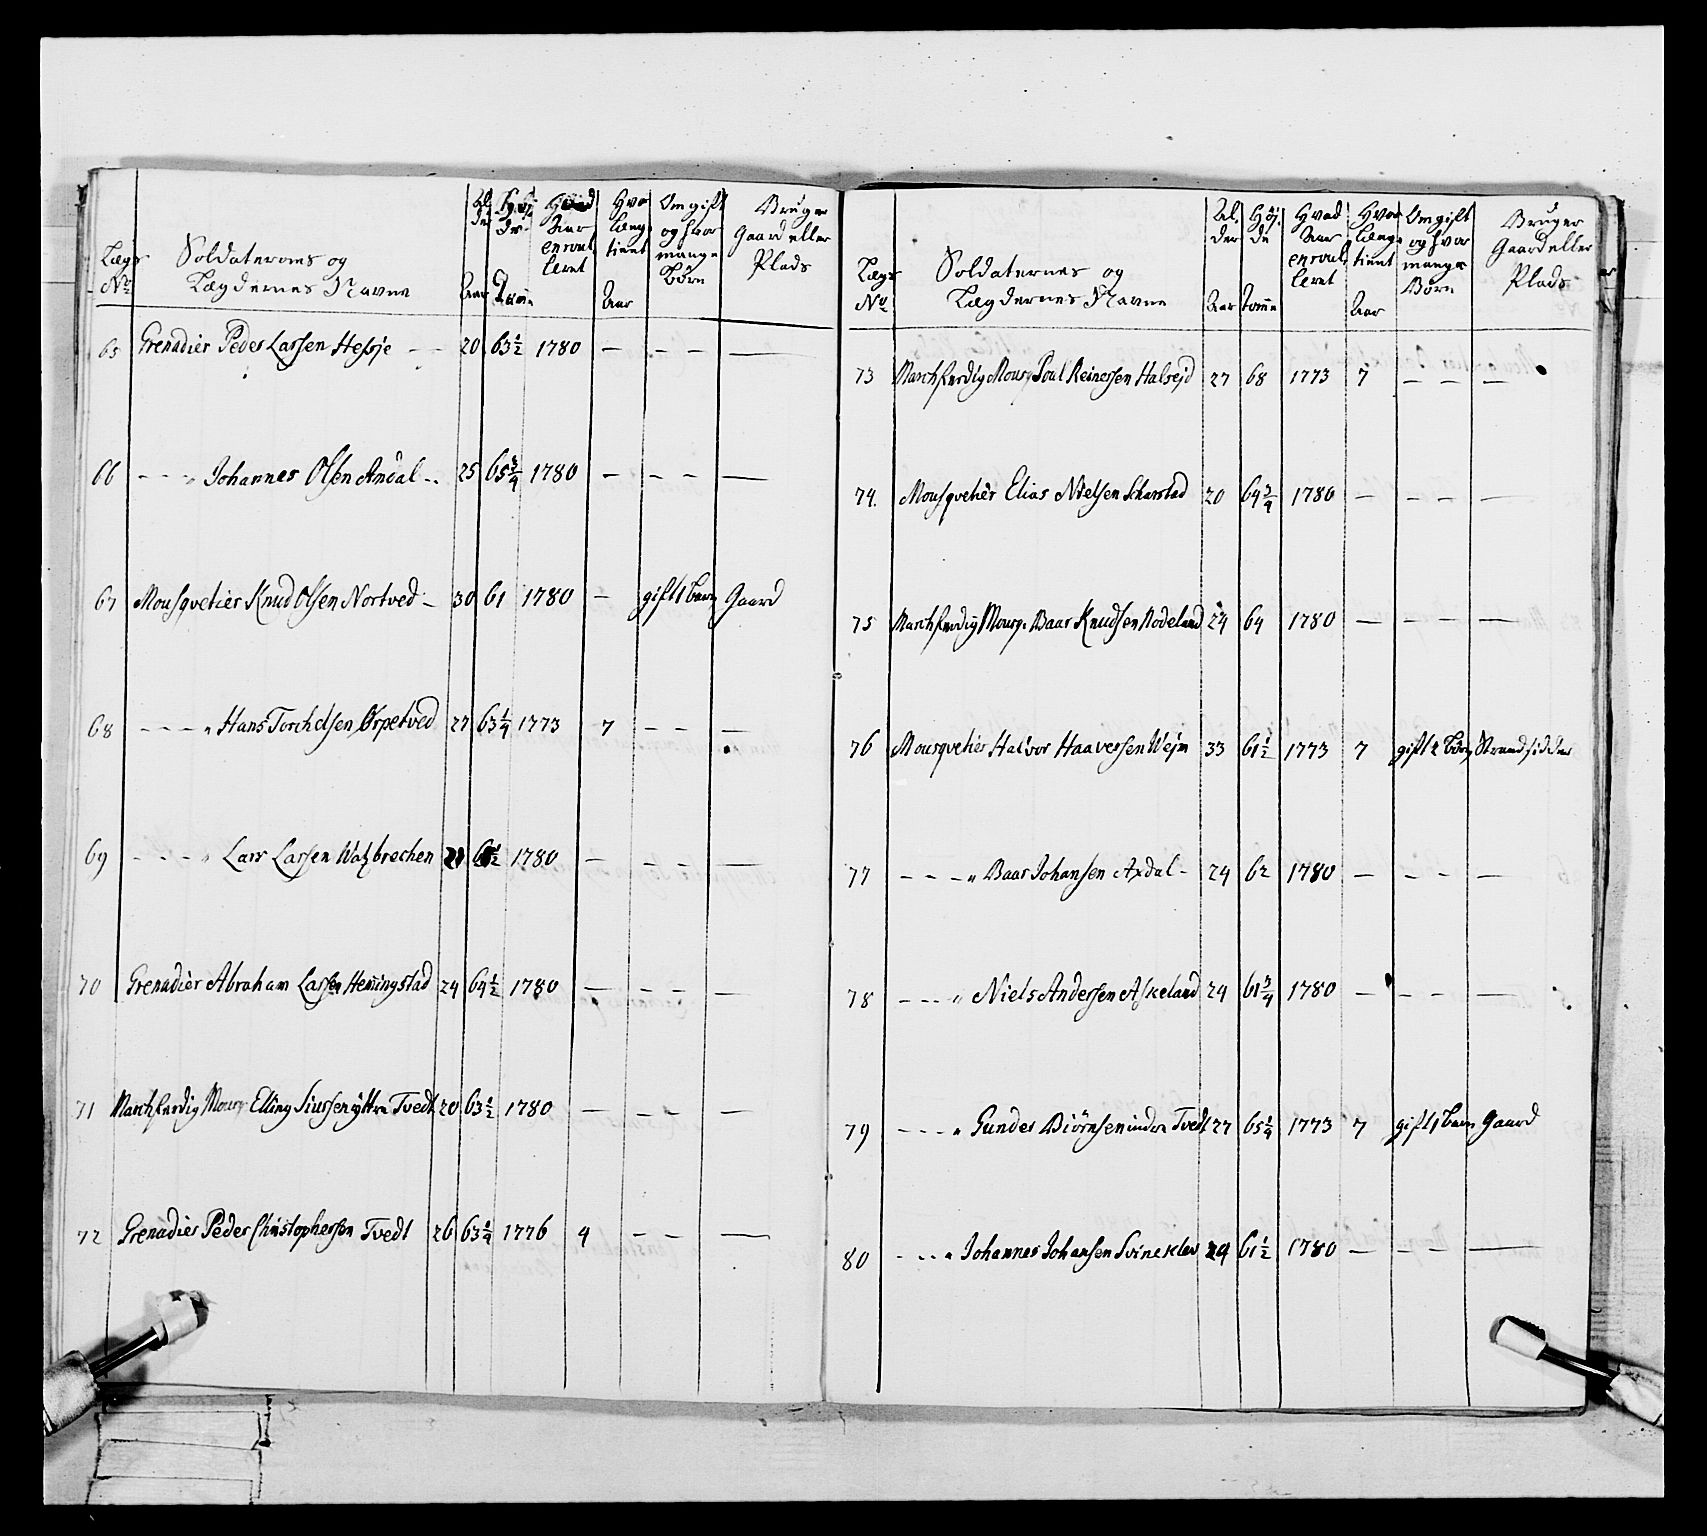 Lægs No Soldaternes og Lægdernes Navne Al der Aar Høj de Tomme Hvad Aar enroul leret Hvor Længe tient Aar Om gift og hvor mange Børn Bruger Gaard eller Plads
65 Grenadier Peder Larsen Hessje - - 20 63½ 1780 — — — —
66 - - - " Johannes Olsen Andal - . 25 65¾ 1780 — — — —
67 Mousqvetier Knud Olsen Nortved - 30 61 1780 — gift 1 barn Gaard
68 - - - - " Hans Torchelsen Ørpetved 27 63¼ 1773 7 — — —
69 - - - - " Lars Larsen 1780 — — — —
70 Grenadier Abraham Larsen Hemingstad 24 64½ 1780 — — — —
71 Marchferdig Mousq. Elling Siursen yttre Tvedt 20 63½ 1780 — — —
72 Grenadier Peder Christophersen Tvedt 26 63¼ 1776 4 — — —
Lægs No Soldaternes og Lægdernes Navne Al der Aar Høj de Tomme Hvad Aar enroul leret Hvor Længe tient Aar Om gift og hvor mange Børn Bruger Gaard eller Plads
73 Marchferdig Mousq. Poul Reinersen Halsejd 27 68 1773 7 — — —
74. Mousqvetier Elias Nielsen Scharstad 20 64¾ 1780 — — — —
75 Marchferdig Mousq. Baar Knudsen Rodeland 24 64 1780 — — — —
76 Mousqvetier Halvor Haaversen Wejn 33 61½ 1773 7 gift 2 børn Strandsidder
77 - - - " Baar Johansen Axdal - 24 62 1780 — — — —
78 - - - " Niels Andersen Askeland 24 61¾ 1780 — — — —
79 - - - " Gunder Biörnsen indre Tvedt 27 65¼ 1773 7 gift 1 barn Gaard
80 - - - " Johannes Johansen Svineklev 24 61½ 1780 — — — —